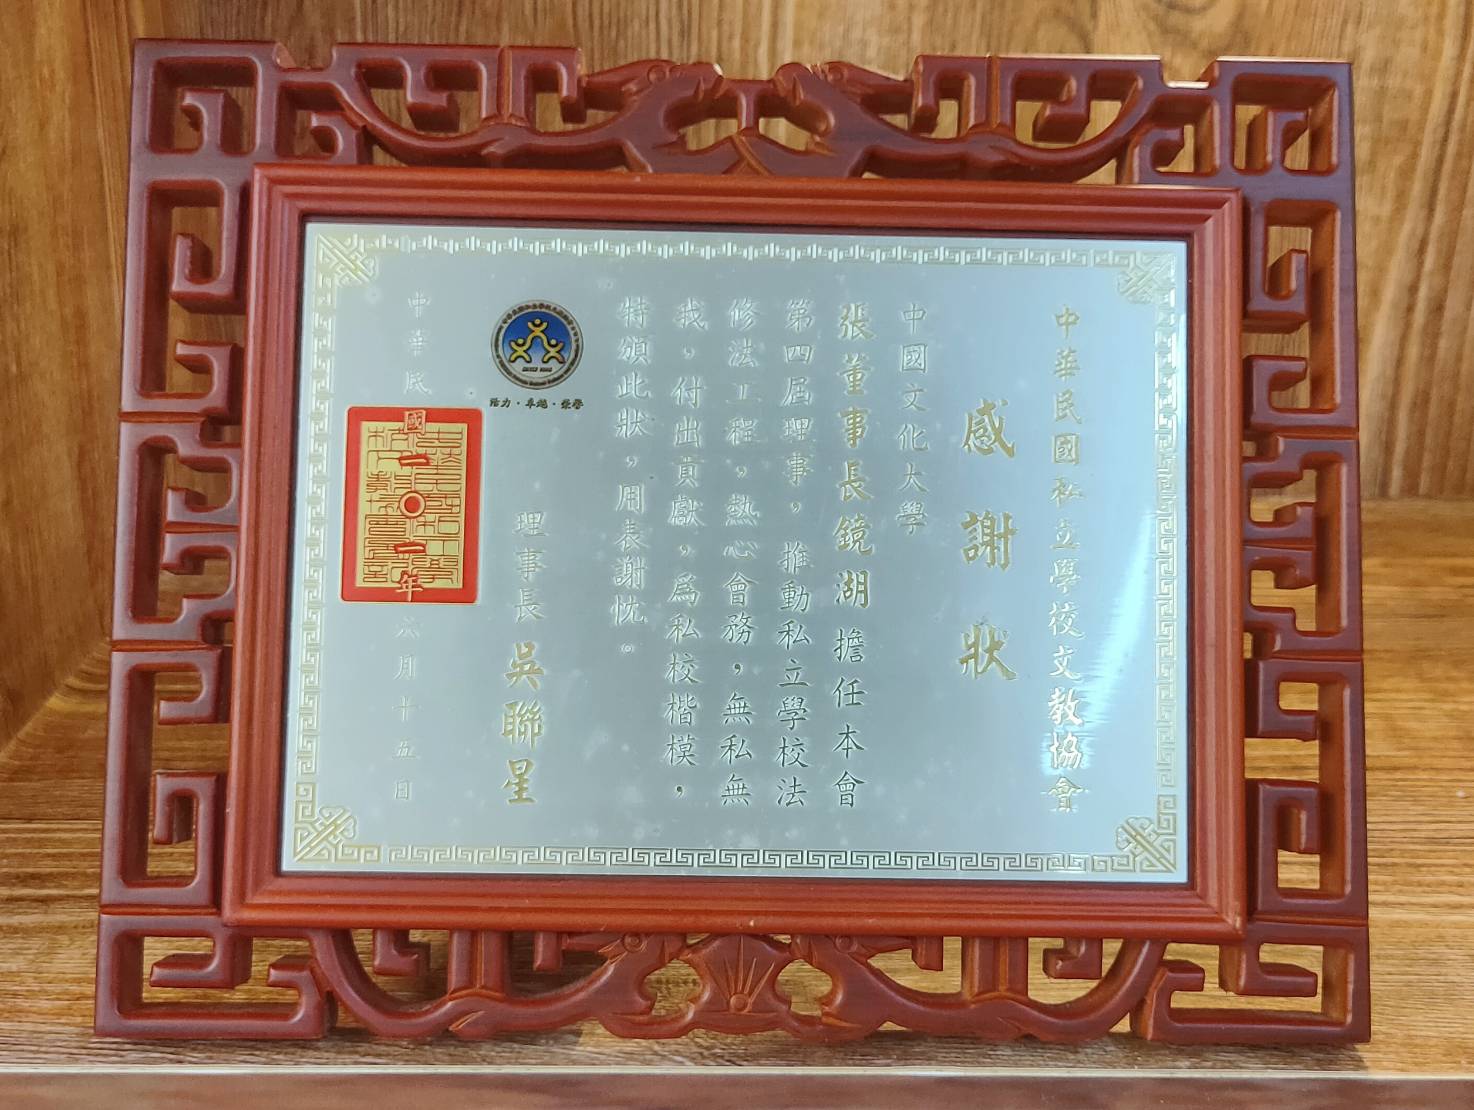 中華民國私立學校文教協會
感謝狀
中國文化大學
張董事長鏡湖擔任本會
第四屆理事，推動私立學校法
修法工程，熱心會務，無私無
我，付出貢獻，為私校楷模，
特頒此狀，用表謝忱。
活力·卓越·榮譽
理事長 吳聯星
中華民國一〇一年六月廿五日